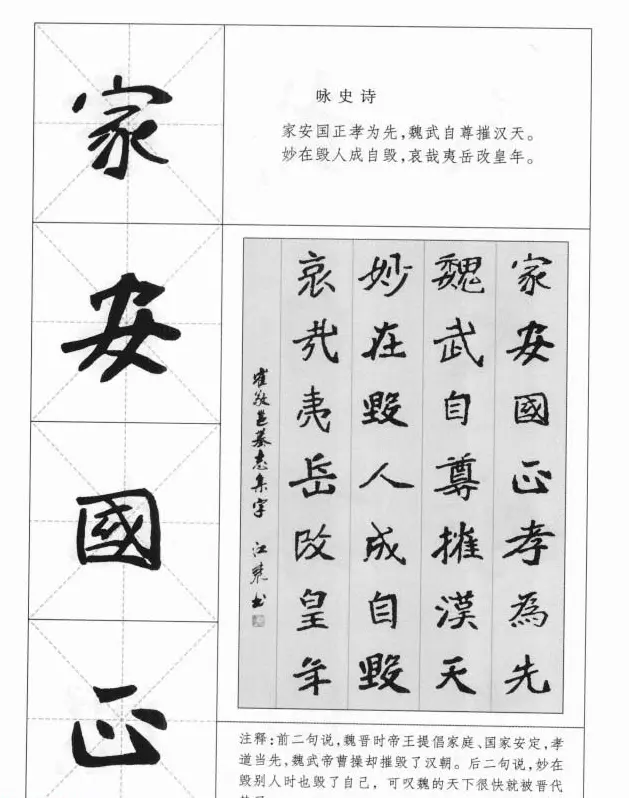 家
安
國
正
咏史诗
家安国正孝为先，魏武自尊摧汉天。
妙在毁人成自毁，哀哉夷岳改皇年。
家安國正孝為先
魏武自尊摧漢天
妙在毀人成自毀
哀哉夷岳改皇年
崔敬邕墓志集字 江東书
注释：前二句说，魏晋时帝王提倡家庭、国家安定，孝
道当先，魏武帝曹操却摧毁了汉朝。后二句说，妙在
毁别人时也毁了自己，可叹魏的天下很快就被晋代